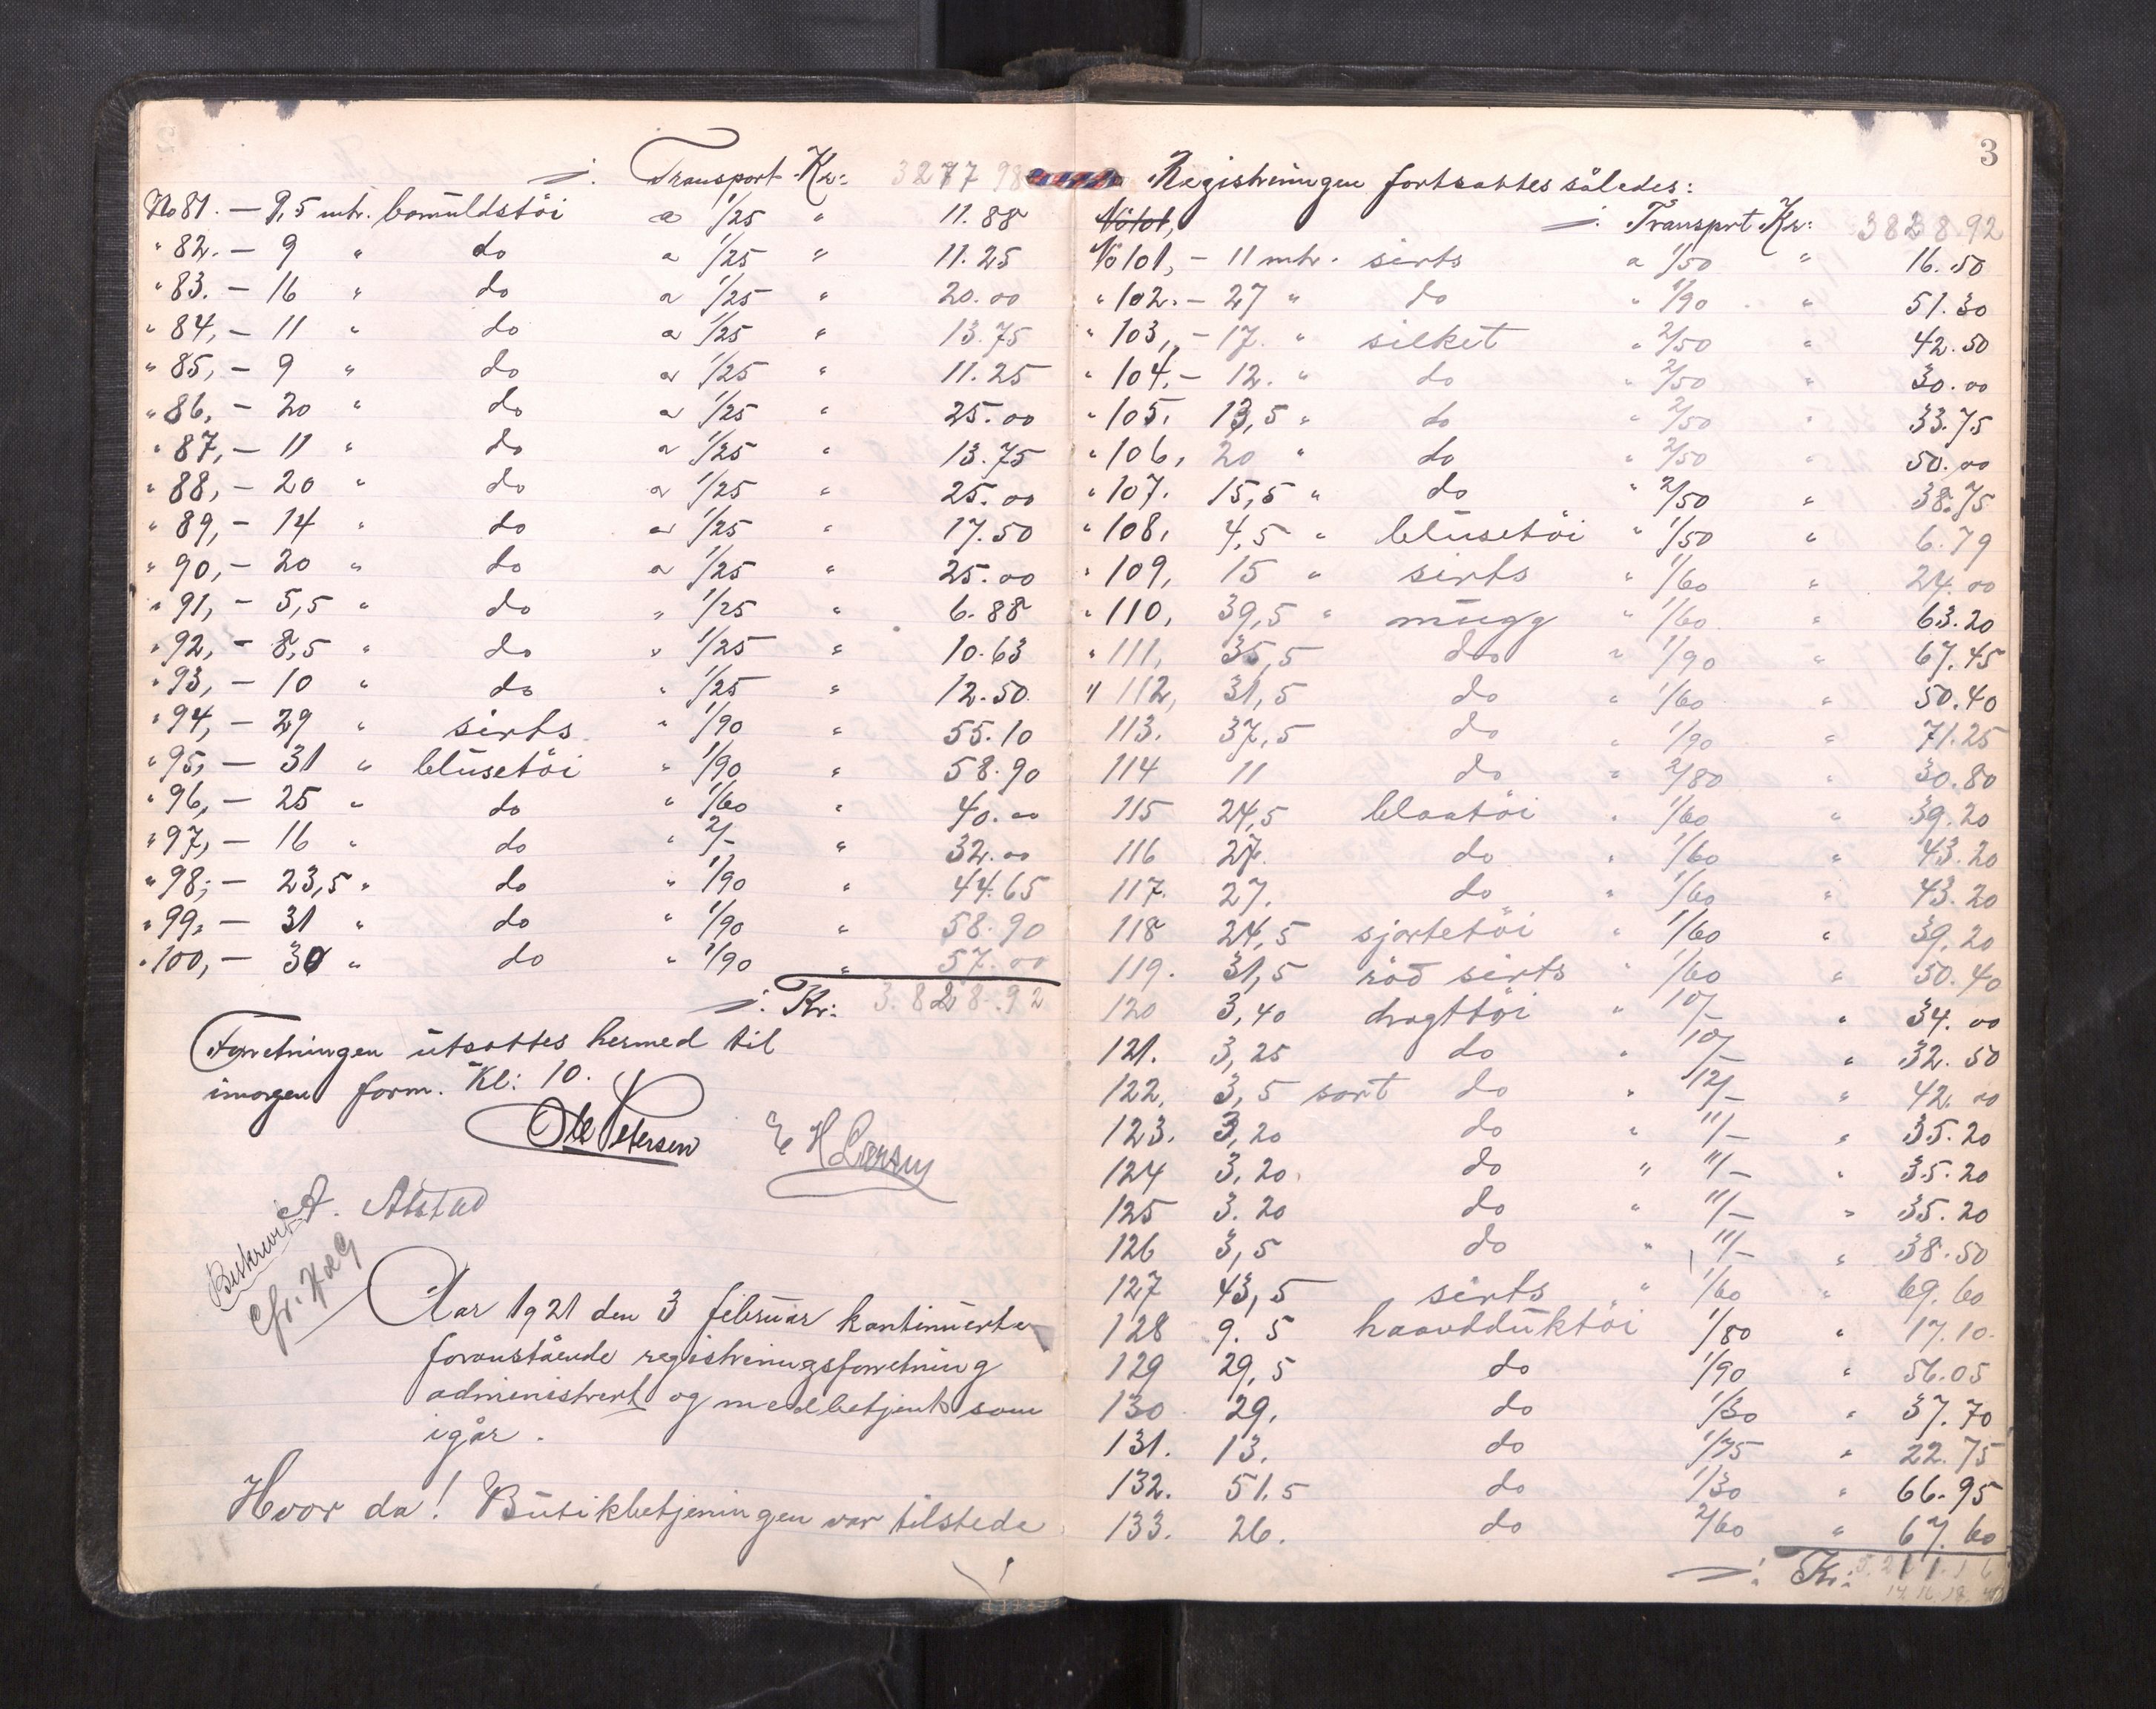 ÷ Transport Kr: 3277 98
No 81. — 9,5 mtr. bomuldstöi a 1/25 " 11.88
" 82. — 9 " do a 1/25 " 11.25
" 83. — 16 " do a 1/25 " 20.00
" 84, — 11 " do a 1/25 " 13.75
" 85, — 9 " do a 1/25 " 11.25
" 86, — 20 " do a 1/25 " 25.00
" 87, — 11 " do a 1/25 " 13.75
" 88, — 20 " do a 1/25 " 25.00
" 89, — 14 " do a 1/25 " 17.50
" 90, — 20 " do a 1/25 " 25.00
" 91, — 5,5 " do " 1/25 " 6.88
" 92, — 8,5 " do " 1/25 " 10.63
" 93, — 10 " do " 1/25 " 12.50
" 94, — 29 " sirts " 1/90 " 55.10
" 95, — 31 " blusetöi " 1/90 " 58.90
" 96, — 25 " do " 1/60 " 40.00
" 97, — 16 " do " 2/- " 32.00
" 98, — 23,5 " do " 1/90 " 44.65
" 99, — 31 " do " 1/90 " 58.90
" 100, — 30 " do " 1/90 " 57.00
÷ Kr: 3.828.92
Forretningen utsattes hermed til
imorgen form. Kl: 10.
Ole Petersen E H Larsen
A. Alstad
Beskrevet
Chr. H & G
Aar 1921 den 3 februar kontinuerte
foranstående registreringsforretning
administrert og medbetjent som
igår.
Hvor da! Butikbetjeningen var tilstede
3
Registreringen fortsattes således:
No 101,
÷ Transprt Kr: 3828.92
No 101, — 11 mtr. sirts a 1/50 " 16.50
" 102. — 27 " do " 1/90 " 51.30
" 103, — 17. " silket " 2/50 " 42.50
" 104. — 12. " do " 2/50 " 30.00
" 105. 13,5 " do " 2/50 " 33.75
" 106, 20 " do " 2/50 " 50.00
" 107. 15,5 " do " 2/50 " 38.75
" 108, 4,5 " blusetöi " 1/50 " 6.79
" 109, 15 " sirts " 1/60 " 24.00
" 110, 39,5 " mugg " 1/60 " 63.20
" 111, 35,5 do " 1/90 " 67.45
" 112, 31,5 do " 1/60 " 50.40
113. 37,5 do " 1/90 " 71.25
114 11 do " 2/80 " 30.80
115 24,5 blaatöi " 1/60 " 39.20
116 27. do " 1/60 " 43.20
117. 27. do " 1/60 " 43.20
118 24,5 sjortetöi " 1/60 " 39.20
119. 31,5 röd sirts " 1/60 " 50.40
120 3,40 dragttöi " 10/- " 34.00
121. 3,25 do " 10/- " 32.50
122, 3,5 sort do " 12/- " 42.00
123. 3,20 do " 11/- " 35.20
124 3,20. do " 11/- " 35.20
125 3.20 do " 11/- " 35.20
126 3,5 do " 11/- " 38.50
127 43,5 sirts " 1/60 " 69.60
128 9.5 haandduktöi 1/80 " 17.10.
129 29,5 do 1/90 " 56.05
130 29, do 1/30 " 37.70
131. 13. do 1/75 " 22.75
132. 51.5 do 1/30 " 66.95
133. 26. do 2/60 " 67.60
÷ Kr: